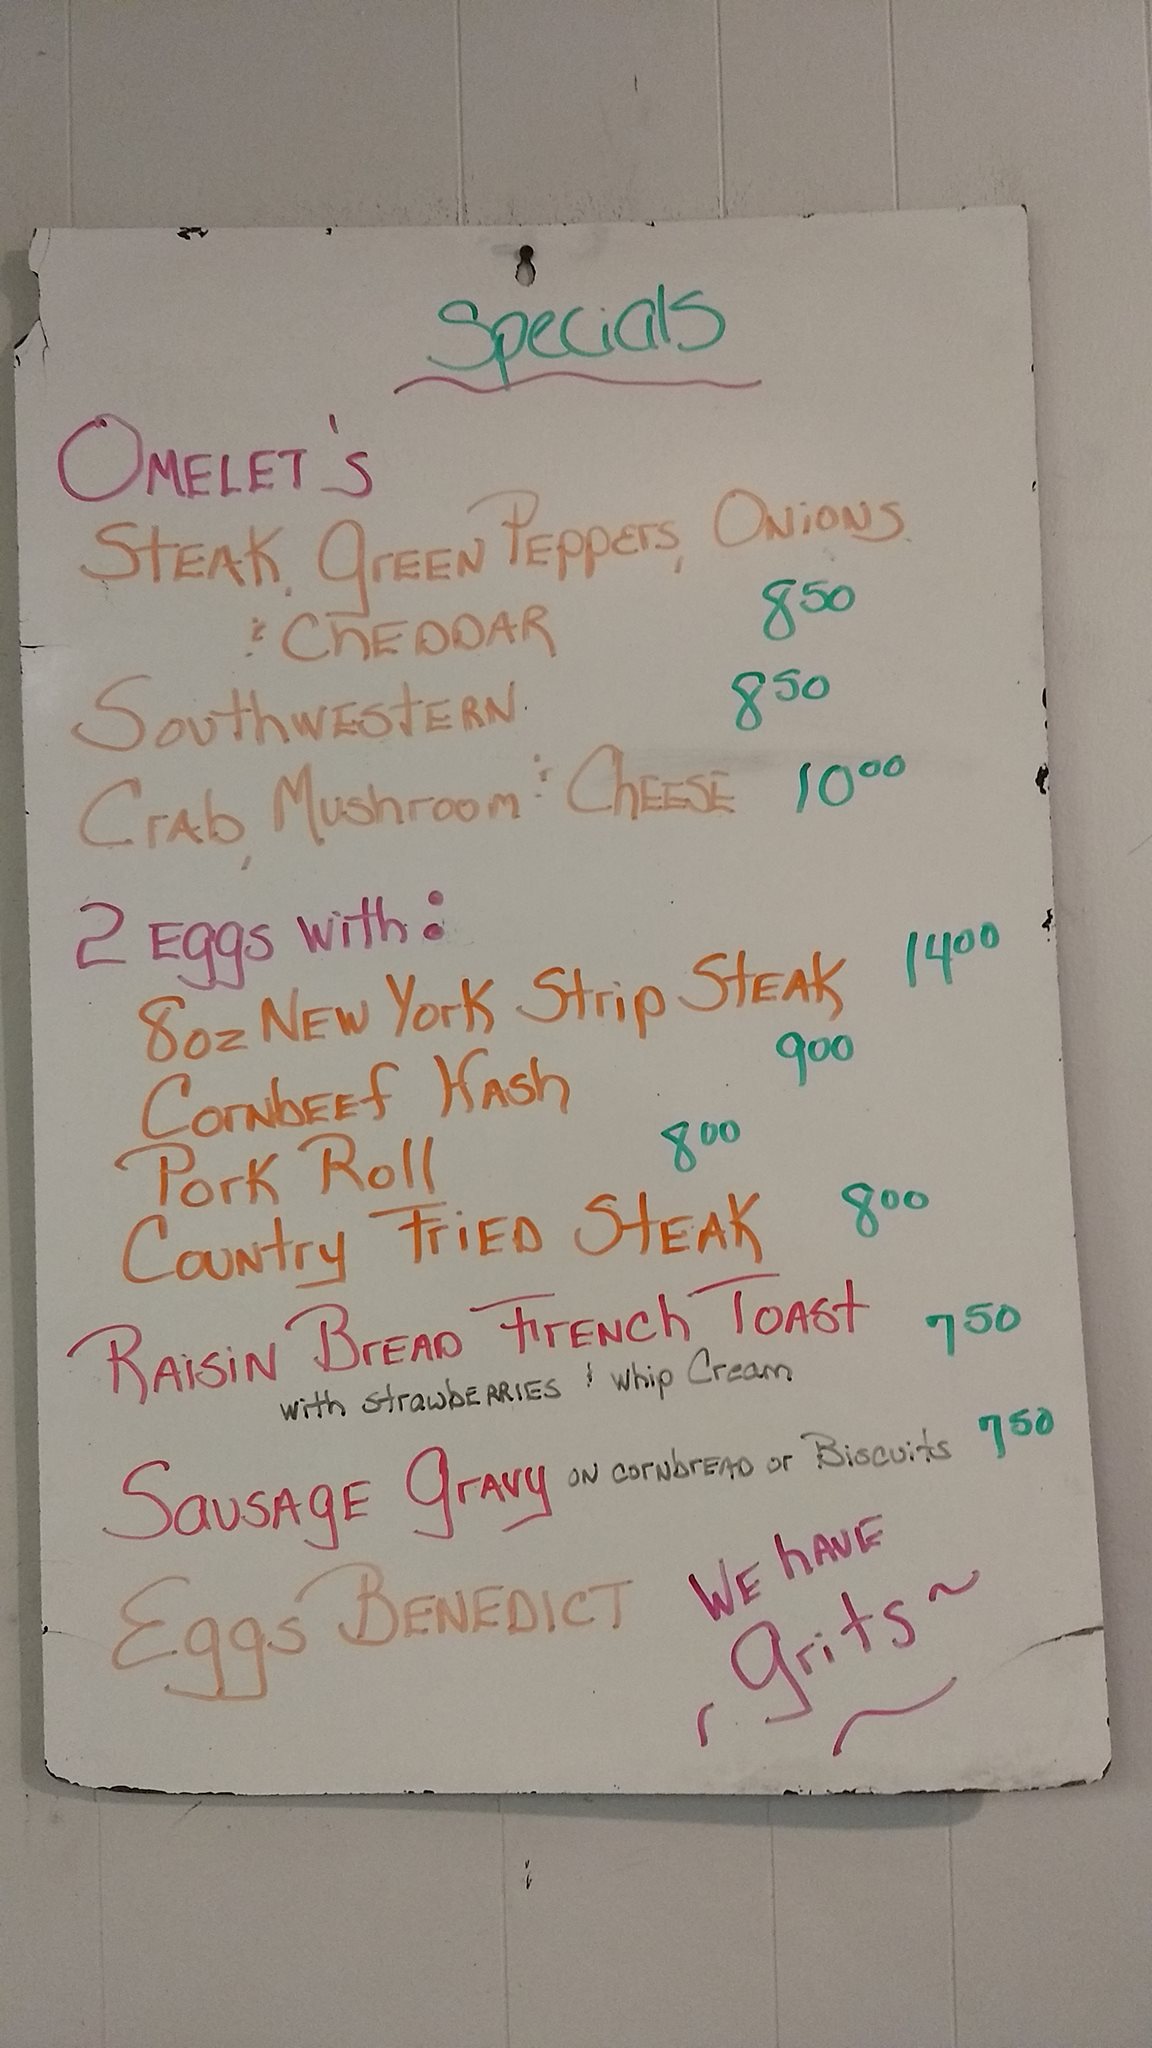 Specials
OMELET'S
STEAK, GREEN PEPPERS, ONIONS
& CHEDDAR 8.50
SOUTHWESTERN 8.50
CRAB, MUSHROOM & CHEESE 10.00
2 EGGS WITH:
8oz NEW YORK STRIP STEAK 14.00
CORNBEEF HASH 9.00
PORK ROLL 8.00
COUNTRY FRIED STEAK 8.00
RAISIN BREAD FRENCH TOAST 7.50
with STRAWBERRIES & Whip Cream
SAUSAGE GRAVY ON CORNBREAD or BISCUITS 7.50
EGGS BENEDICT
WE HAVE
Grits~